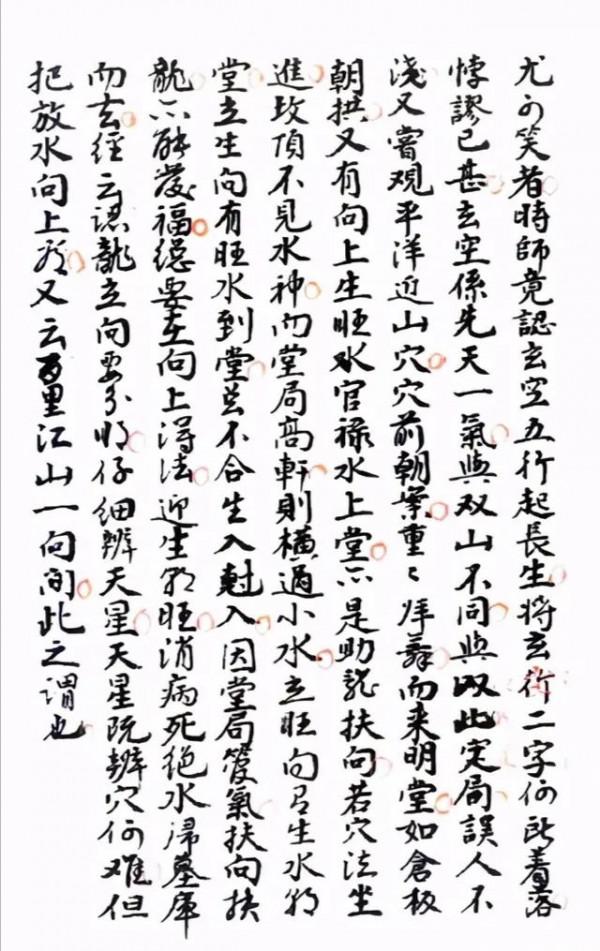 尤可笑者時師竟認玄空五行起長生將玄行二字何所着落
悖謬已甚玄空係先天一氣與双山不同與以此定局誤人不
淺又嘗觀平洋近山穴穴前朝案重〻拜舞而来明堂如倉板
朝拱又有向上生旺水官禄水上堂亦是助龍扶向若穴法坐
進坟頂不見水神而堂局高軒則橫過小水立旺向有生水朝
堂立生向有旺水到堂豈不合生入尅入因堂局氣扶向扶
龍亦能發福總要在向上得法迎生朝旺消病死絶水歸墓庫
而玄經云認龍立向要分明仔細辨天星天星既辨穴何难但
把放水向上又云萬里江山一向間此之謂也